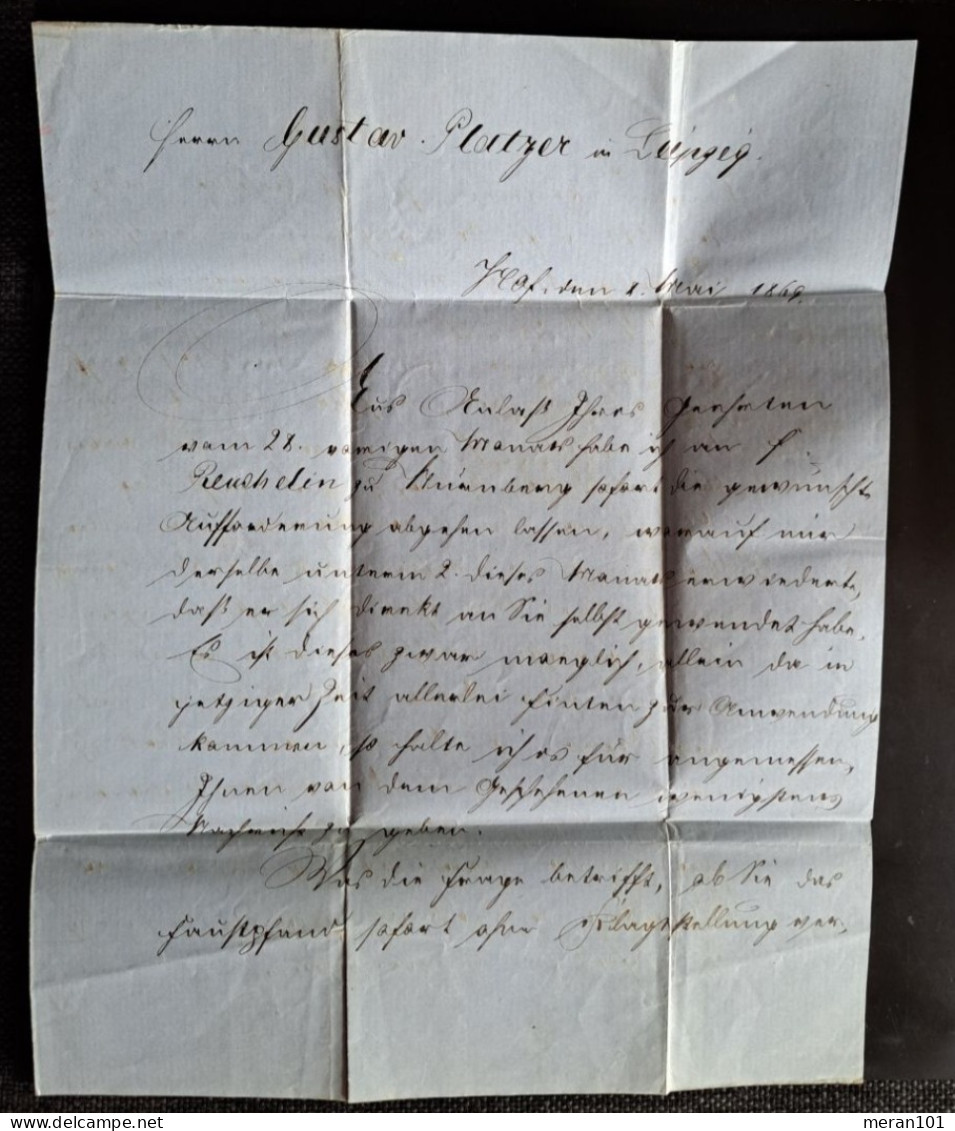 Herrn Gustav Platzer in Leipzig.
Hof, den 8. Mai 1869.
Aus Anlaß Ihres Geehrten
vom 28. vorigen Monats habe ich an H.
Reuschelin zu Nürnberg sofort die gewünschte
Aufforderung abgehen lassen, worauf mir
derselbe unterm 2. dieses Monats erwiederte,
daß er sich direkt an Sie selbst gewendet habe.
Es ist dieses zwar moeglich, allein da in
jetziger Zeit allerlei Finten zur Anwendung
kommen, so halte ich es für angemessen,
Ihnen von dem Geschehenen wenigstens
Nachricht zu geben.
Was die Frage betrifft, ob Sie das
Faustpfand sofort ohne Klagstellung ver-
meran101